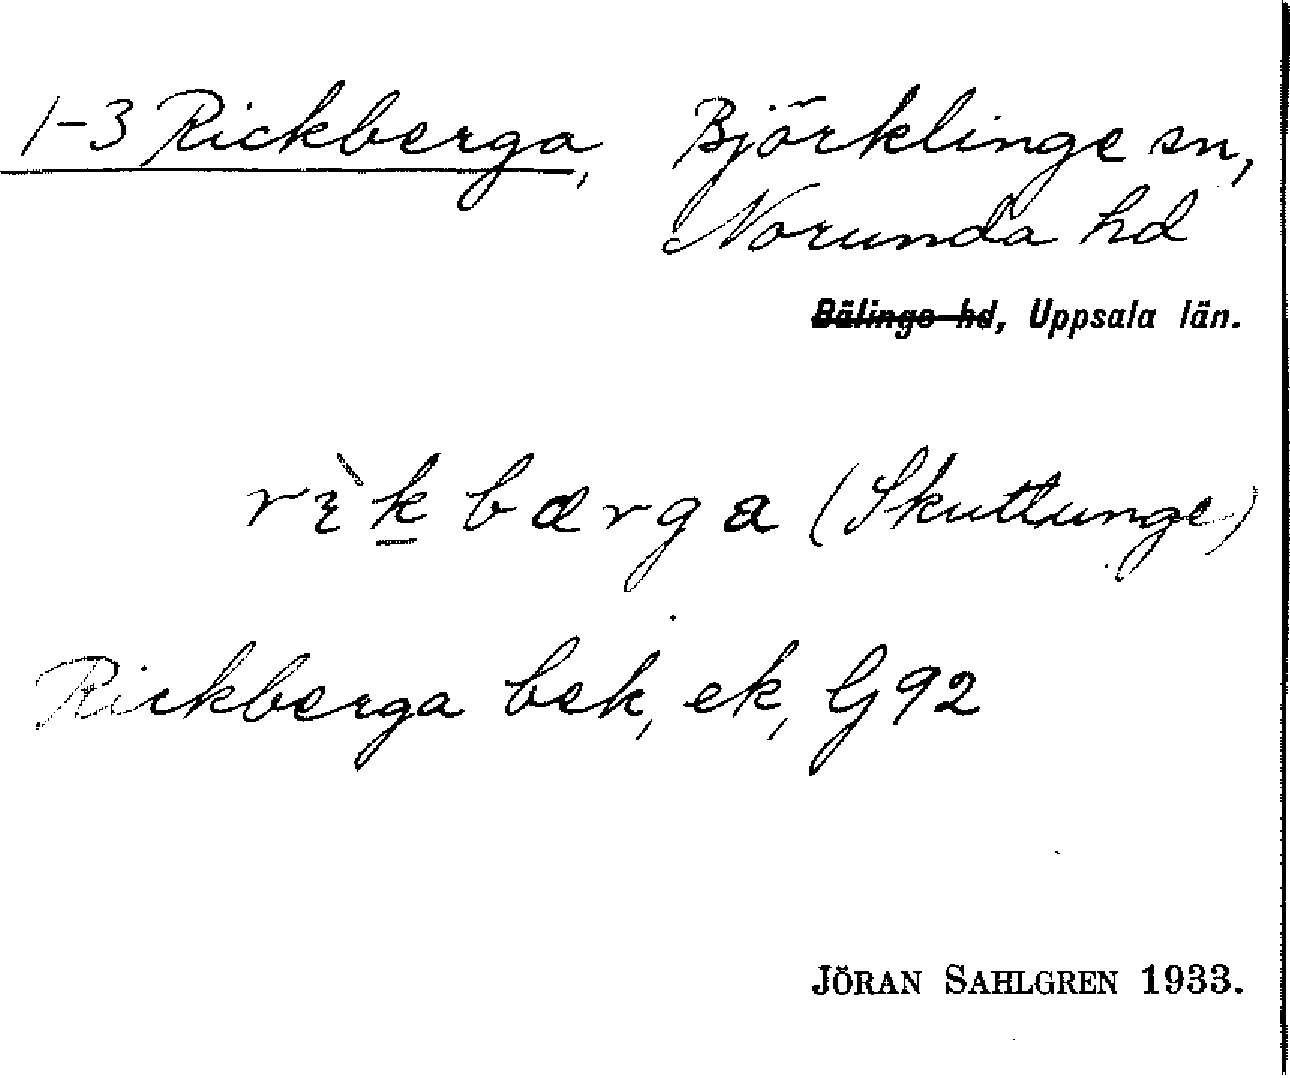 1-3 Rickberga, Björklinge sn,
Norunda hd
Bälinge hd, Uppsala län.
rὶkbærga (Skuttunge)
Rickberga bek, ek, G92
JÖRAN SAHLGREN 1933.